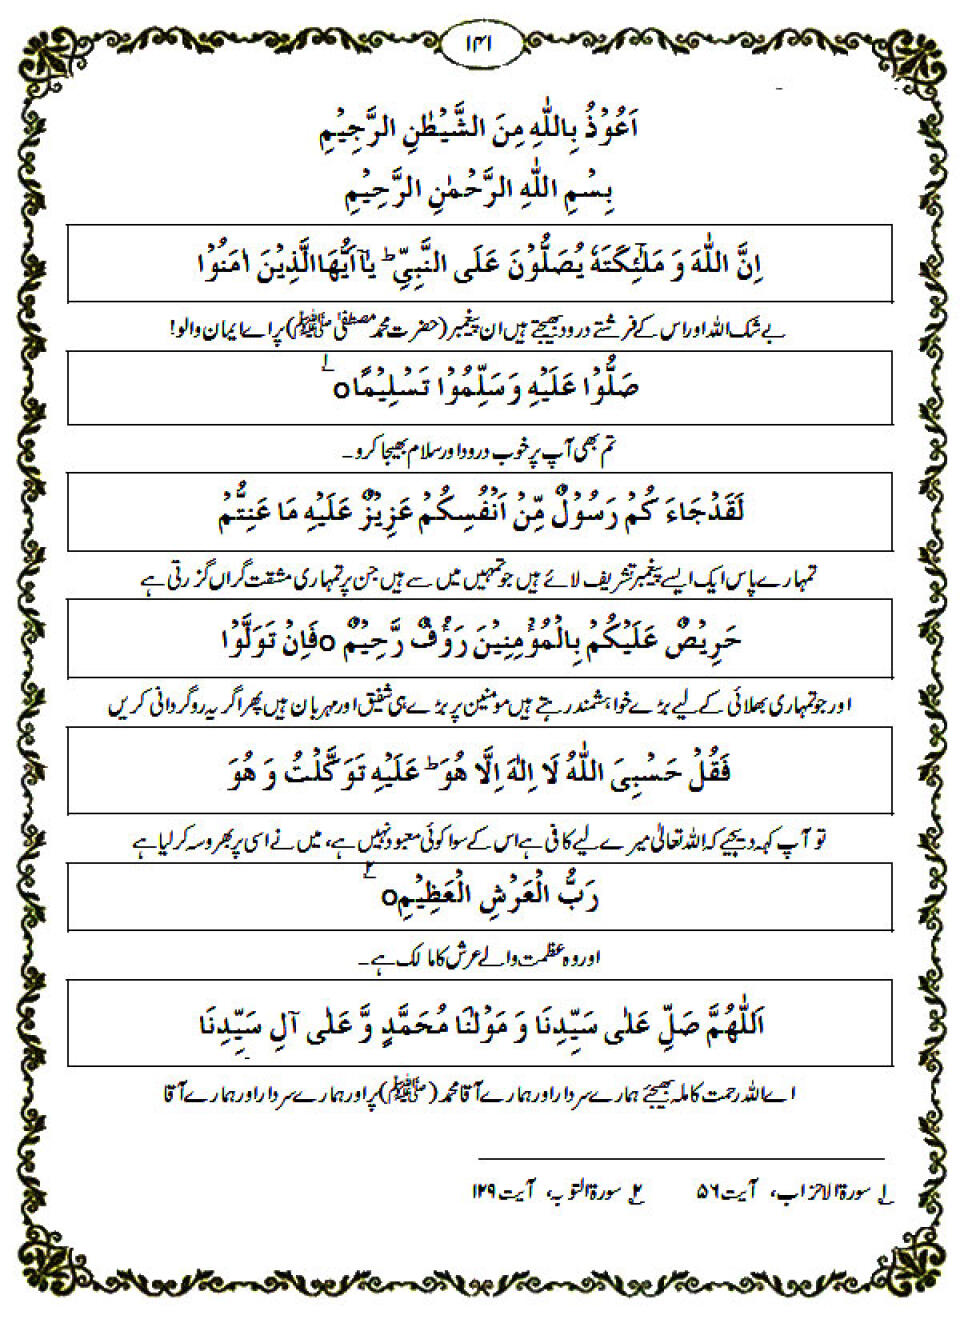 ۱۴۱
اَعُوْذُ بِاللّٰهِ مِنَ الشَّیْطٰنِ الرَّجِیْمِ
بِسْمِ اللّٰهِ الرَّحْمٰنِ الرَّحِیْمِ
اِنَّ اللّٰهَ وَ مَلٰٓئِكَتَهٗ یُصَلُّوْنَ عَلَی النَّبِیِّ ؕ یٰۤاَیُّهَاالَّذِیْنَ اٰمَنُوْا
بے شک اللہ اور اس کے فرشتے درود بھیجتے ہیں ان پیغمبر (حضرت محمد مصطفیٰ ﷺ) پر اے ایمان والو!
صَلُّوْا عَلَیْهِ وَ سَلِّمُوْا تَسْلِیْمًا○ ۱؎
تم بھی آپ پر خوب درود اور سلام بھیجا کرو۔
لَقَدْجَاءَ كُمْ رَسُوْلٌ مِّنْ اَنْفُسِكُمْ عَزِیْزٌ عَلَیْهِ مَا عَنِتُّمْ
تمہارے پاس ایک ایسے پیغمبر تشریف لائے ہیں جو تمہیں میں سے ہیں جن پر تمہاری مشقت گراں گزرتی ہے
حَرِیْصٌ عَلَیْكُمْ بِالْمُؤْمِنِیْنَ رَؤُفٌ رَّحِیْمٌ ○ فَاِنْ تَوَلَّوْا
اور جو تمہاری بھلائی کے لیے بڑے خواہشمند رہتے ہیں مومنین پر بڑے ہی شفیق اور مہربان ہیں پھر اگر یہ روگردانی کریں
فَقُلْ حَسْبِیَ اللّٰهُ لَا اِلٰهَ اِلَّا هُوَ ؕ عَلَیْهِ تَوَكَّلْتُ وَ هُوَ
تو آپ کہہ دیجیے کہ اللہ تعالیٰ میرے لیے کافی ہے اس کے سوا کوئی معبود نہیں ہے، میں نے اسی پر بھروسہ کر لیا ہے
رَبُّ الْعَرْشِ الْعَظِیْمِ○ ۲؎
اور وہ عظمت والے عرش کا مالک ہے۔
اَللّٰهُمَّ صَلِّ عَلٰی سَیِّدِنَا وَ مَوْلٰنَا مُحَمَّدٍ وَّ عَلٰی آلِ سَیِّدِنَا
اے اللہ رحمت کاملہ بھیجئے ہمارے سردار اور ہمارے آقا محمد (ﷺ) پر اور ہمارے سردار اور ہمارے آقا
۱؎ سورۃ الاحزاب، آیت ۵۶ ۲؎ سورۃ التوبہ، آیت ۱۲۹